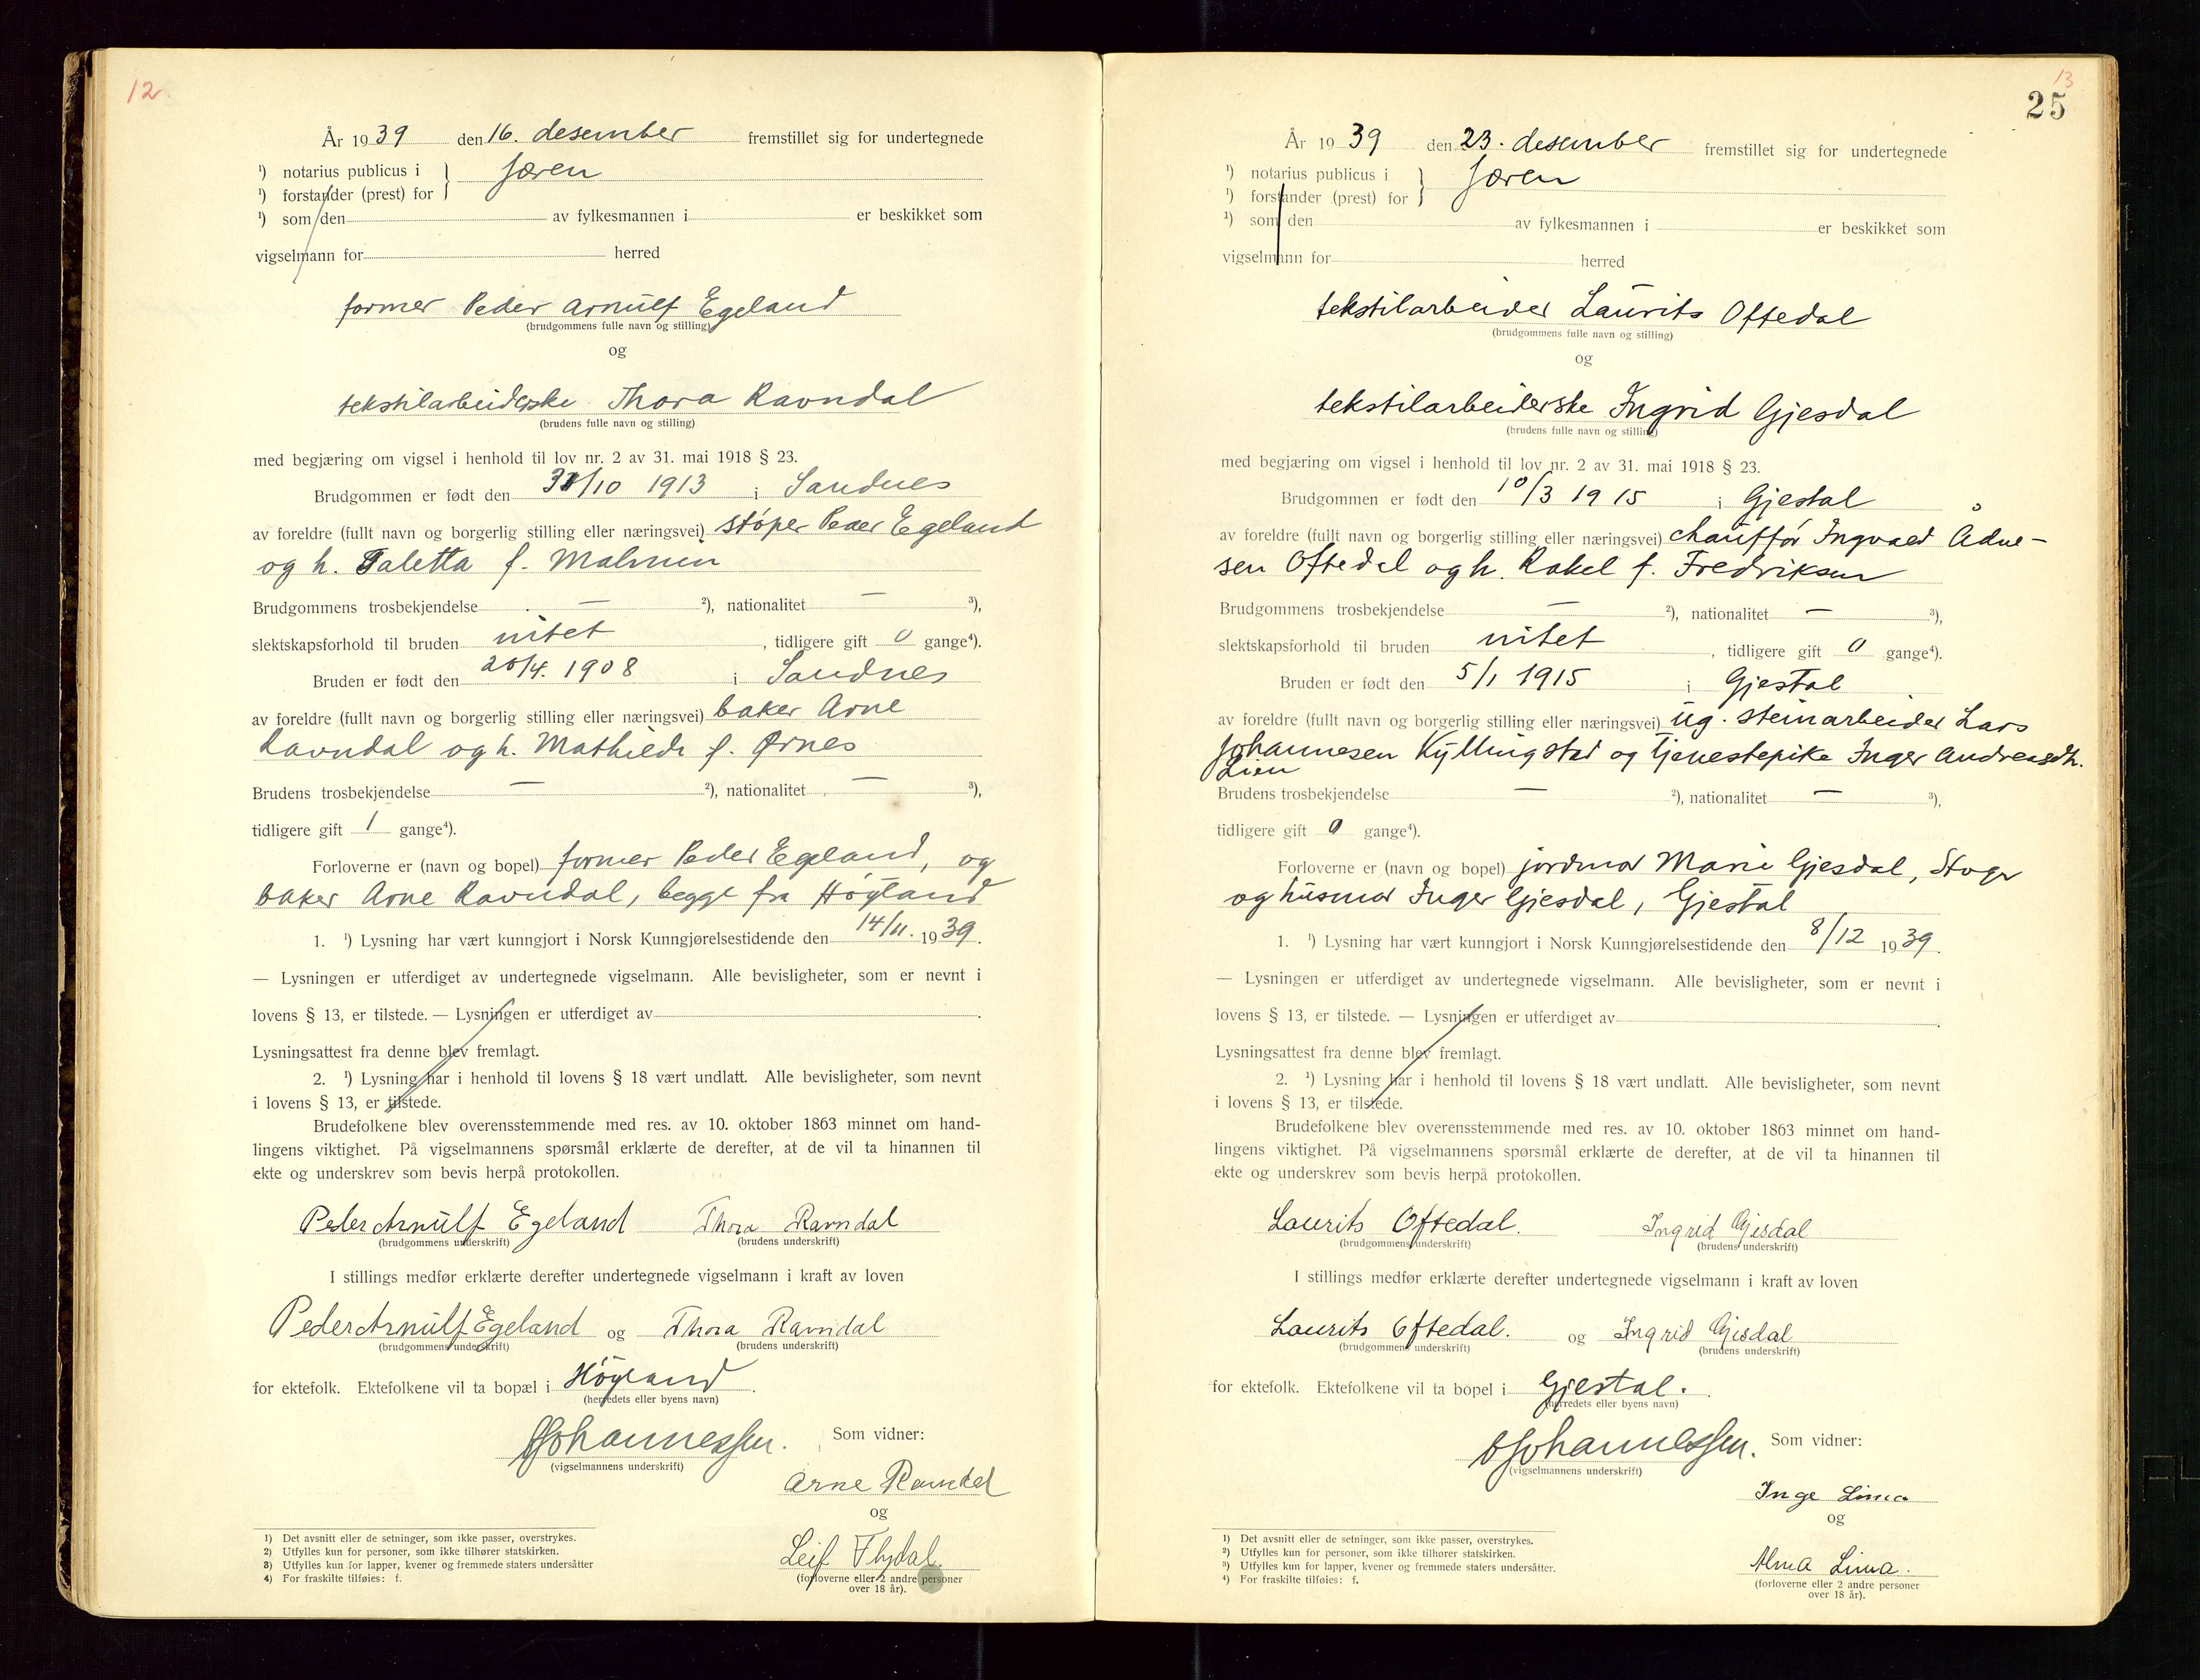 12
År 1939 den 16. desember fremstillet sig for undertegnede
¹) notarius publicus i } Jæren
¹) forstander (prest) for
¹) som den av fylkesmannen i er beskikket som
vigselmann for herred
former Peder Arnulf Egeland
(brudgommens fulle navn og stilling)
og
tekstilarbeiderske Thora Ravndal
(brudens fulle navn og stilling)
med begjæring om vigsel i henhold til lov nr. 2 av 31. mai 1918 § 23.
Brudgommen er født den /10 1913 i Sandnes
av foreldre (fullt navn og borgerlig stilling eller næringsvei) støper Peder Egeland
og h. Taletta f. Malmin
Brudgommens trosbekjendelse — ²), nationalitet — ³),
slektskapsforhold til bruden intet, tidligere gift 0 gange⁴).
Bruden er født den 20/4. 1908 i Sandnes
av foreldre (fullt navn og borgerlig stilling eller næringsvei) baker Arne
Ravndal og h. Mathilde f. Ørnes
Brudens trosbekjendelse — ²), nationalitet — ³),
tidligere gift 1 gange⁴).
Forloverne er (navn og bopel) former Peder Egeland, og
baker Arne Ravndal, begge fra Høyland
1. ¹) Lysning har vært kunngjort i Norsk Kunngjørelsestidende den 14/11. 1939.
— Lysningen er utferdiget av undertegnede vigselmann. Alle bevisligheter, som er nevnt i
lovens § 13, er tilstede. — Lysningen er utferdiget av .
Lysningsattest fra denne blev fremlagt.
2. ¹) Lysning har i henhold til lovens § 18 vært undlatt. Alle bevisligheter, som nevnt
i lovens § 13, er tilstede.
Brudefolkene blev overensstemmende med res. av 10. oktober 1863 minnet om hand-
lingens viktighet. På vigselmannens spørsmål erklærte de derefter, at de vil ta hinannen til
ekte og underskrev som bevis herpå protokollen.
Peder Arnulf Egeland Thora Ravndal
(brudgommens underskrift) (brudens underskrift)
I stillings medfør erklærte derefter undertegnede vigselmann i kraft av loven
Peder Arnulf Egeland og Thora Ravndal
(brudgommens underskrift) (brudens underskrift)
for ektefolk. Ektefolkene vil ta bopæl i Høyland.
(herredets eller byens navn)
Johannessen. Som vidner:
(vigselmannens underskrift)
Arne Ravndal
og
Leif
(forloverne eller 2 andre personer
over 18 år).
1) Det avsnitt eller de setninger, som ikke passer, overstrykes.
2) Utfylles kun for personer, som ikke tilhører statskirken.
3) Utfylles kun for lapper, kvener og fremmede staters undersåtter
4) For fraskilte tilføies: f.
13
25
År 1939 den 23. desember fremstillet sig for undertegnede
¹) notarius publicus i } Jæren
¹) forstander (prest) for
¹) som den av fylkesmannen i er beskikket som
vigselmann for herred
tekstilarbeider Laurits Oftedal
(brudgommens fulle navn og stilling)
og
tekstilarbeiderske Ingrid Gjesdal
(brudens fulle navn og stilling)
med begjæring om vigsel i henhold til lov nr. 2 av 31. mai 1918 § 23.
Brudgommen er født den 10/3 1915 i Gjestal
av foreldre (fullt navn og borgerlig stilling eller næringsvei) chauffør Ingvald Ådne-
sen Oftedal og h. Rakel f. Fredriksen
Brudgommens trosbekjendelse — ²), nationalitet — ³),
slektskapsforhold til bruden intet, tidligere gift 0 gange⁴).
Bruden er født den 5/1 1915 i Gjestal
av foreldre (fullt navn og borgerlig stilling eller næringsvei) ug. steinarbeider Lars
Johannesen Kyllingstad og tjenestepike Inger Andreasdtr.
Lien
Brudens trosbekjendelse — ²), nationalitet — ³),
tidligere gift 0 gange⁴).
Forloverne er (navn og bopel) jordmor Marie Gjesdal,
og husmor Inger Gjesdal, Gjestal
1. ¹) Lysning har vært kunngjort i Norsk Kunngjørelsestidende den 8/12 1939.
— Lysningen er utferdiget av undertegnede vigselmann. Alle bevisligheter, som er nevnt i
lovens § 13, er tilstede. — Lysningen er utferdiget av .
Lysningsattest fra denne blev fremlagt.
2. ¹) Lysning har i henhold til lovens § 18 vært undlatt. Alle bevisligheter, som nevnt
i lovens § 13, er tilstede.
Brudefolkene blev overensstemmende med res. av 10. oktober 1863 minnet om hand-
lingens viktighet. På vigselmannens spørsmål erklærte de derefter, at de vil ta hinannen til
ekte og underskrev som bevis herpå protokollen.
Laurits Oftedal. Ingrid Gjesdal
(brudgommens underskrift) (brudens underskrift)
I stillings medfør erklærte derefter undertegnede vigselmann i kraft av loven
Laurits Oftedal. og Ingrid Gjesdal
(brudgommens underskrift) (brudens underskrift)
for ektefolk. Ektefolkene vil ta bopel i Gjestal.
(herredets eller byens navn)
Johannessen. Som vidner:
(vigselmannens underskrift)
Inge Lima
og
Alma Lima.
(forloverne eller 2 andre personer
over 18 år).
¹) Det avsnitt eller de setninger, som ikke passer, overstrykes.
²) Utfylles kun for personer, som ikke tilhører statskirken.
³) Utfylles kun for lapper, kvener og fremmede staters undersåtter.
⁴) For fraskilte tilføies: f.